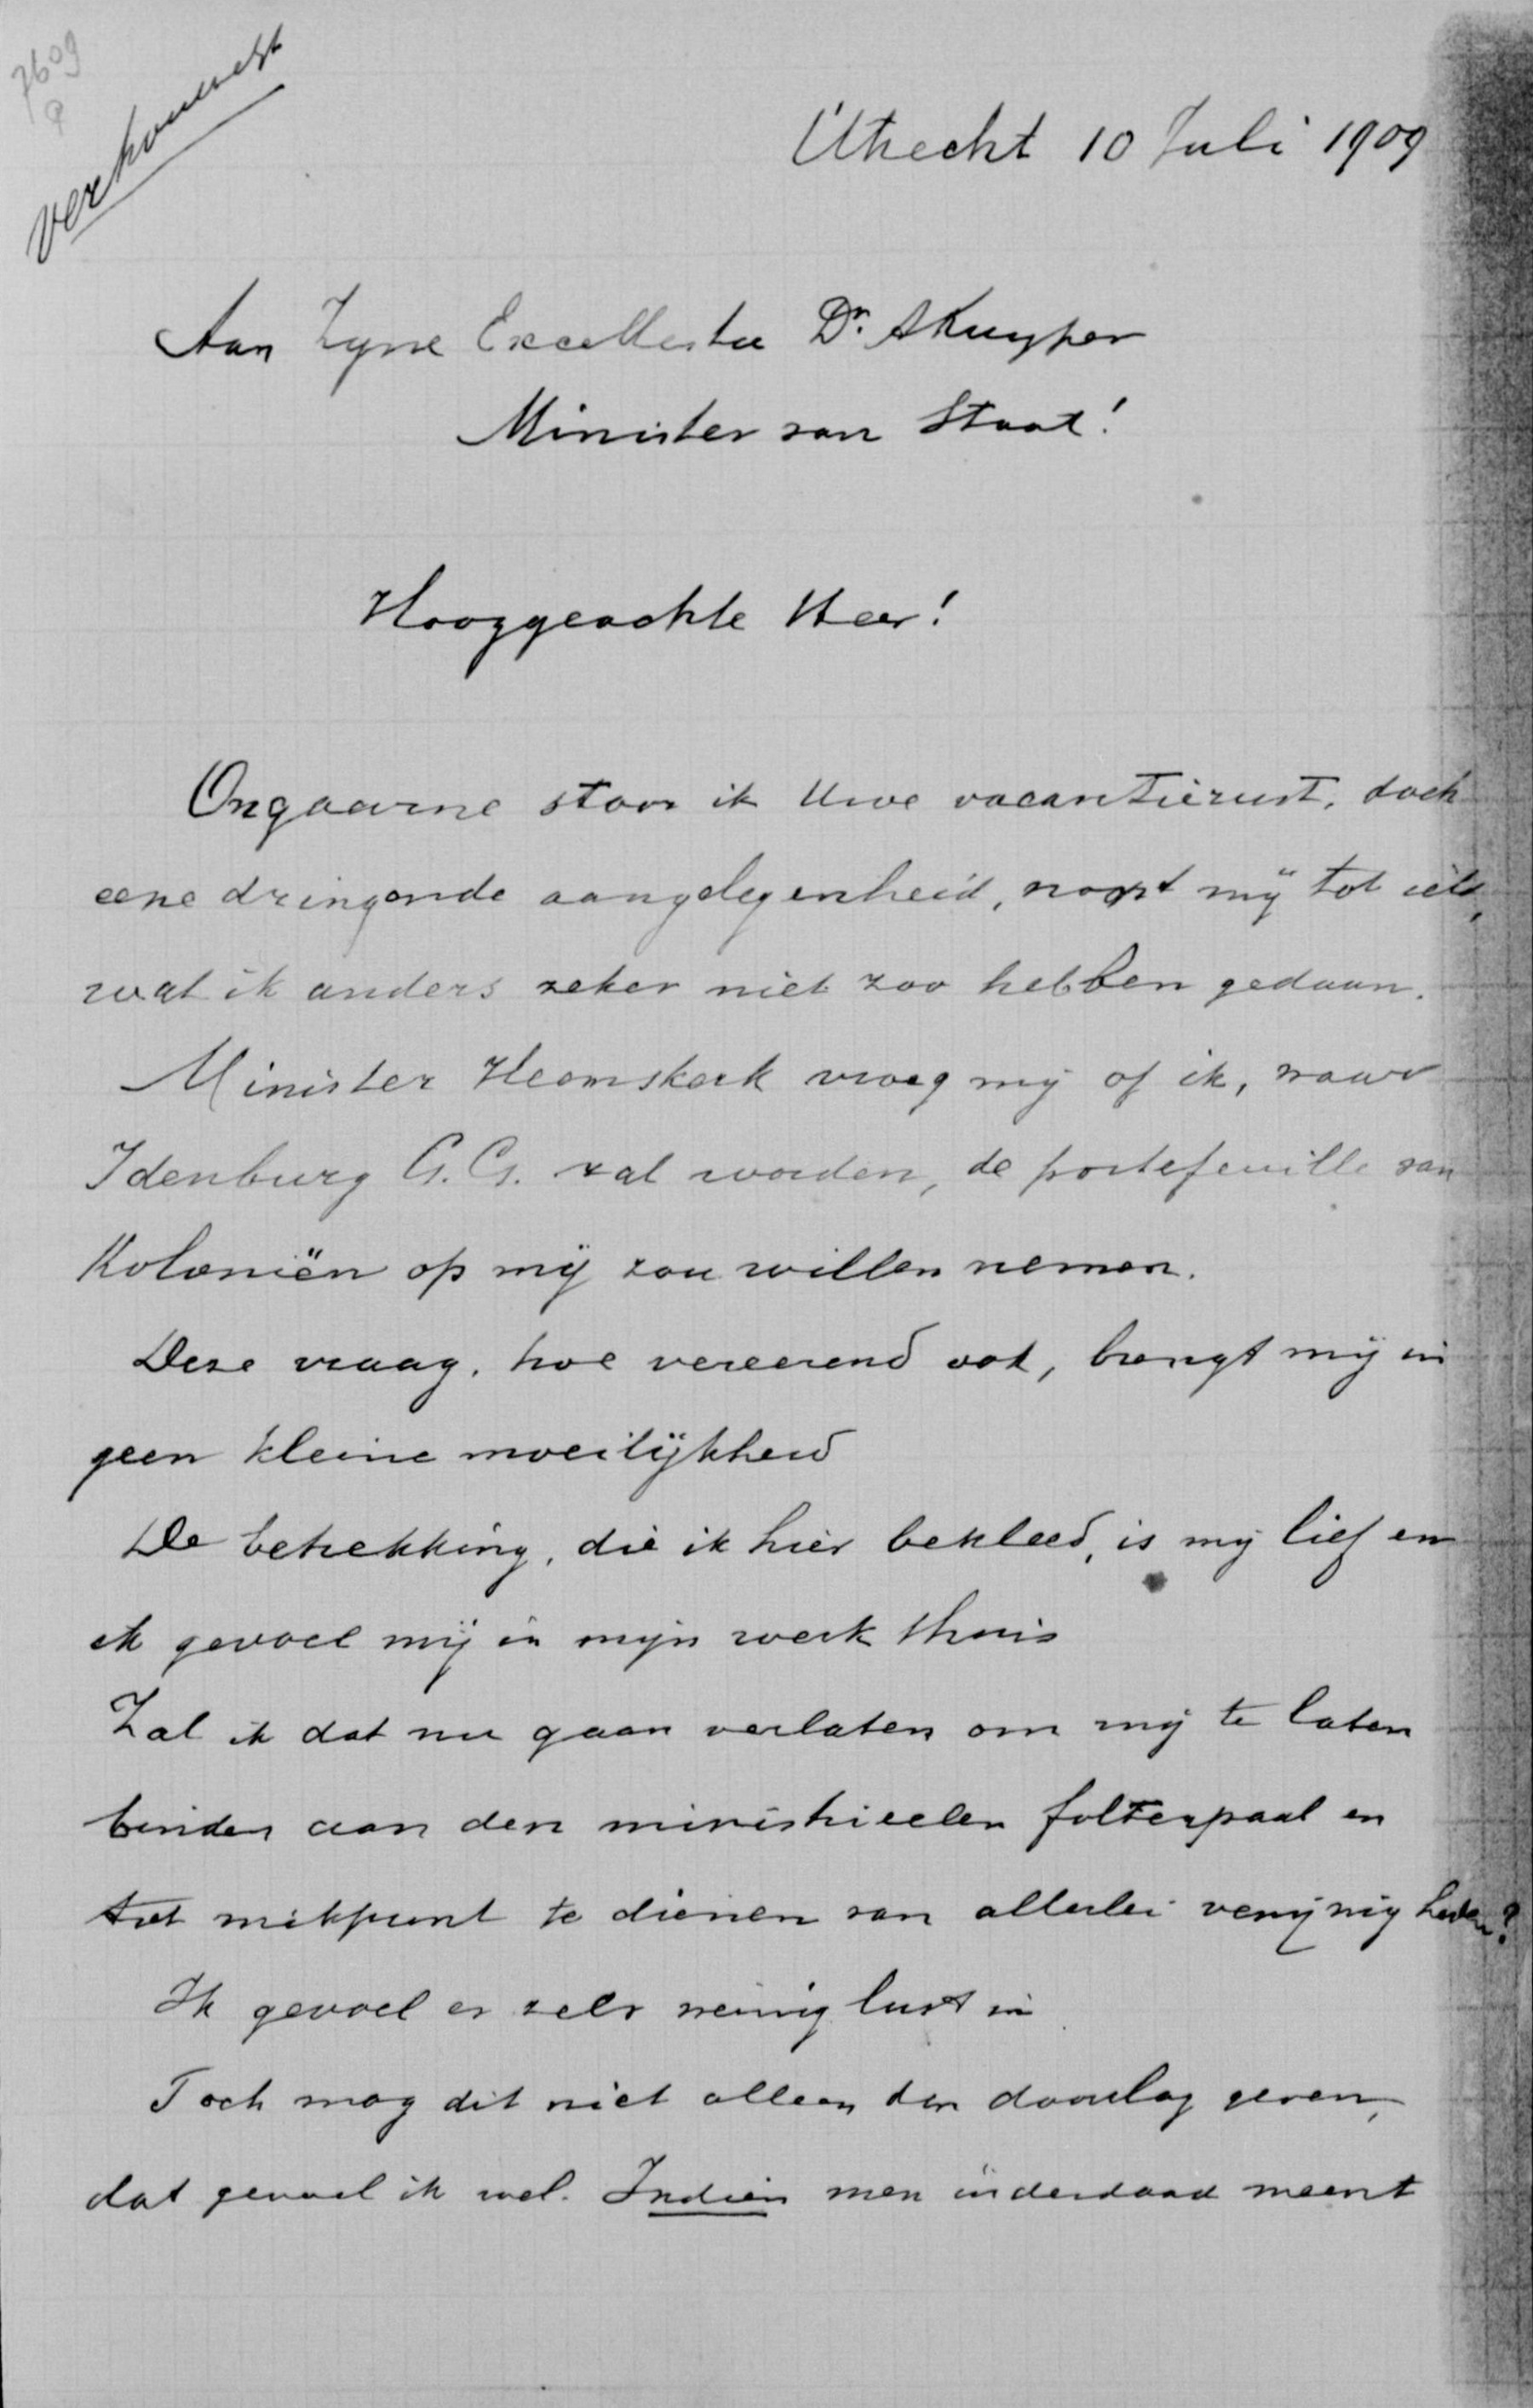 7609
Utrecht 10 Juli 1909
Aan Zijne Excellentie Dr. AKuyper
Minister van Staat!
Hooggeachte Heer!
Ongaarne stoor ik Uwe vacantierust, doch
eene dringende aangelegenheid, noopt mij tot iets,
wat ik anders zeker niet zoo hebben gedaan.
Minister Heemskerk vroeg mij of ik, waar
Idenburg G.G. zal worden, de portefeuille van
Koloniën op mij zou willen nemen.
Deze vraag, hoe vereerend ook, brengt mij in
geen kleine moeilijkheid
De betrekking, die ik hier bekleed, is mij lief en
ik gevoel mij in mijn werk thuis
Zal ik dat nu gaan verlaten om mij te laten
binden aan den ministrieelen folterpaal en
tot mikpunt te dienen van allerlei venijnigheden?
Ik gevoel er zelv weinig lust in
Toch mag dit niet alleen den doorslag geven,
dat gevoel ik wel. Indien men inderdaad meent